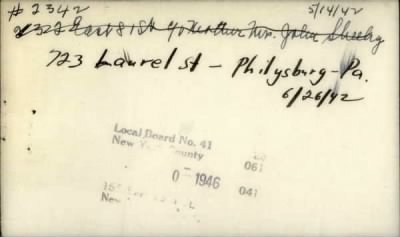 # 2342 5/14/42
2323 East 81 St c/o Mother Mrs. John Sheehy
723 Laurel St - Philysburg - Pa.
6/26/42
Local Board No. 41
New York County
061
0 - 1946 041
New